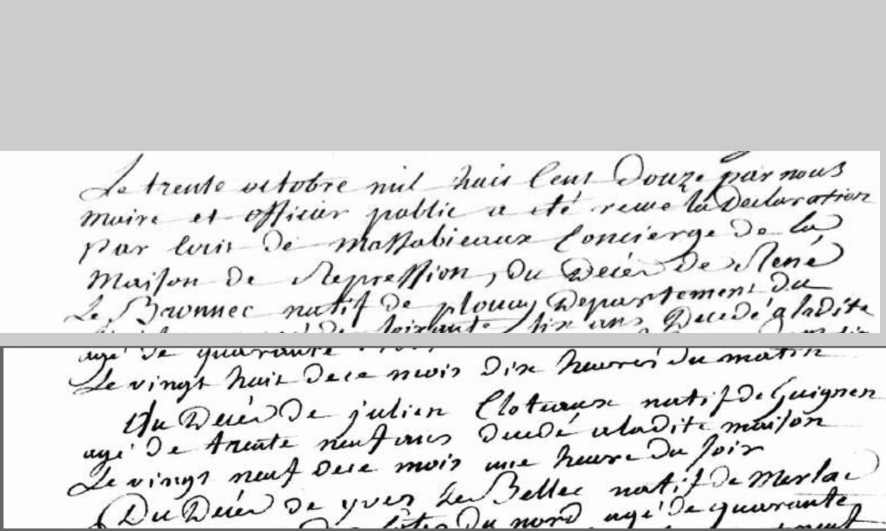 Le trente octobre mil huit Cent Douze par nous
maire et officier public a été recue la Declaration
par louis de massabieaux Concierge de la
Maison de Repression, du Décès de René
Le Bronnec natif de plouay Departement du
agé de soixante six ans Decedé a ladite
agé de quarante
Le vingt huit dece mois dix heures du matin
Du Décès De julien Cloteaux natif de Guignen
agé De trente neuf ans decedé a ladite maison
Le vingt neuf dece mois une heure du soir
Du Décès de yves Le Bellec natif de Merlac
Côtes du nord agé de quarante